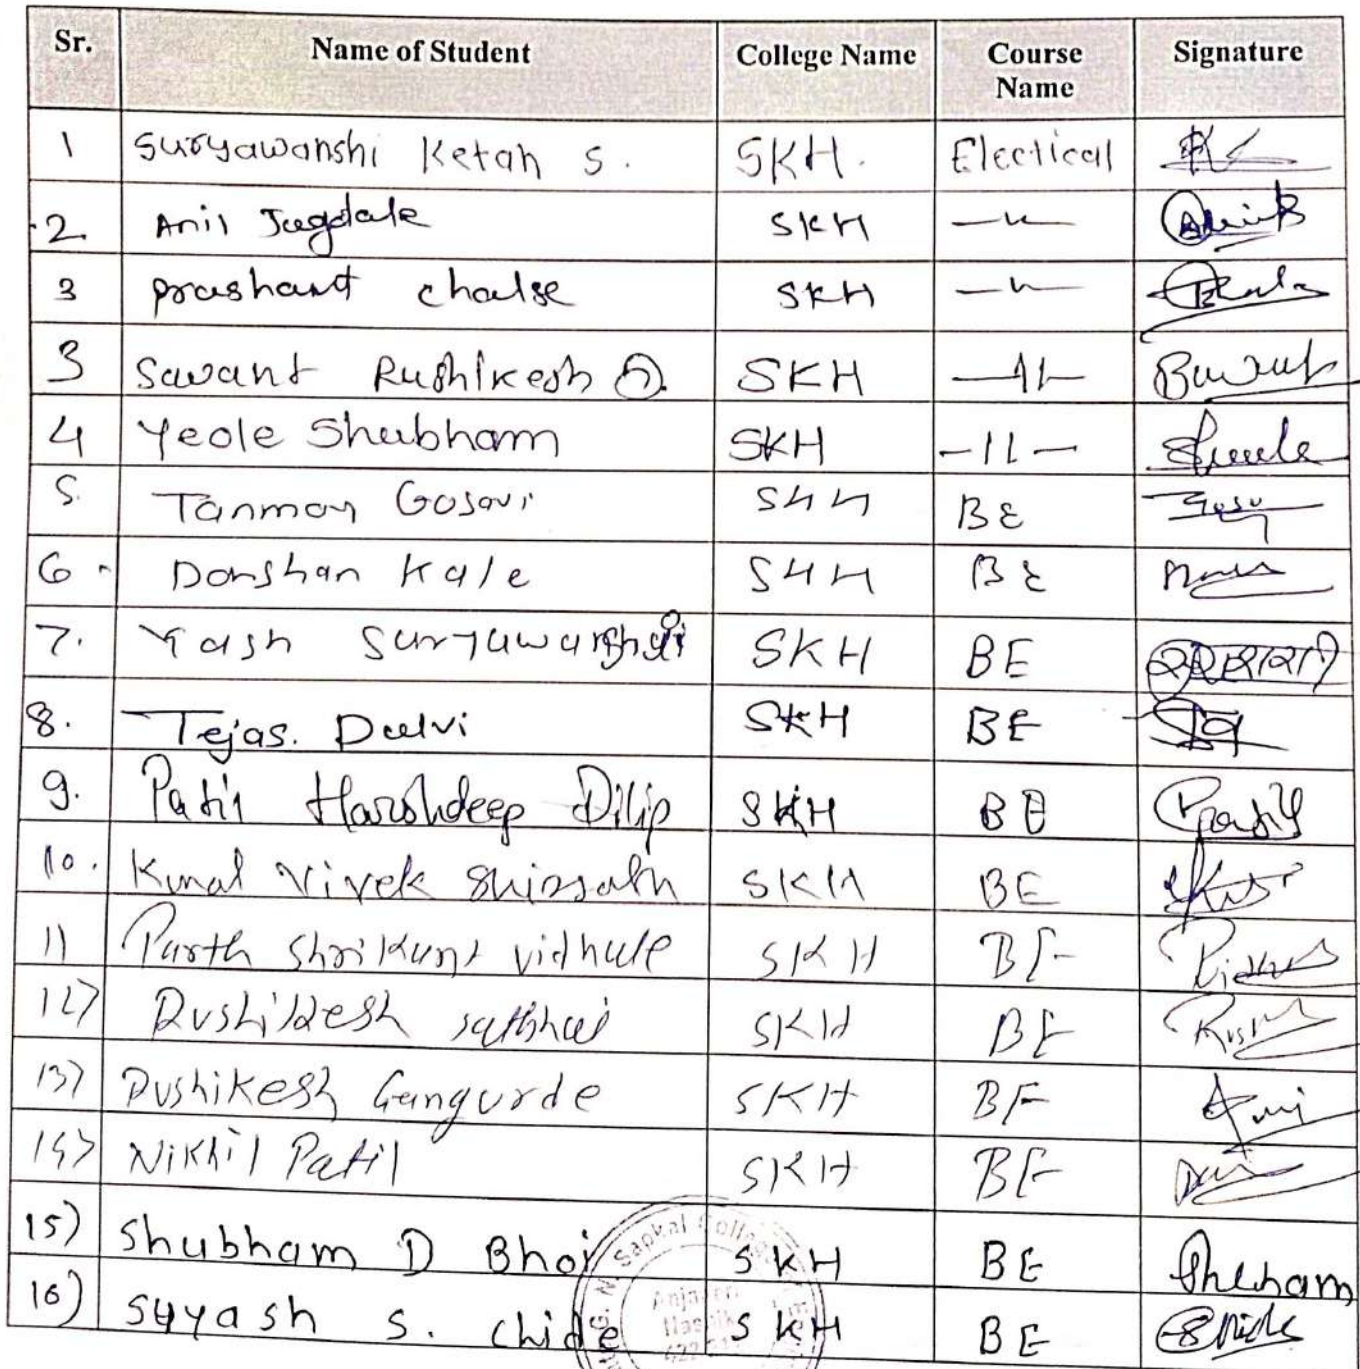 Sr. Name of Student College Name Course Name Signature
1 Suryawanshi Ketan S. SKH. Electical
2. Anil Jagdale SKH —"—
3 prashant chalse SKH —"—
3 Savant Rushikesh SKH —11—
4 Yeole Shubham SKH —11—
5. Tanmay Gosavi SKH BE
6. Darshan Kale SKH BE
7. Yash Suryawanshi SKH BE
8. Tejas. Dalvi SKH BE
9. Patil Harshdeep Dilip SKH BE Patil
10. Kunal Vivek Shirsath SKH BE
11 Parth Shrikant vidhate SKH BE
12) Rushikesh sathhai SKH BE
13) Rushikesh Gangurde SKH BE
14) Nikhil Patil SKH BE
15) Shubham D Bhoi SKH BE Shubham
16) Suyash S. chide SKH BE
G. N. Sapkal College
Anjaneri
Nashik